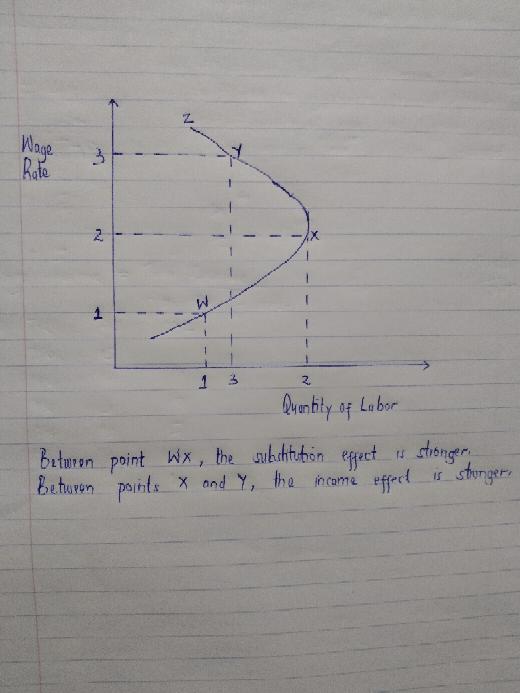 Z
Wage
Rate
3
Y
2
X
1
W
1 3 2
Quantity of Labor
Between point WX, the substitution effect is stronger.
Between points X and Y, the income effect is stronger.